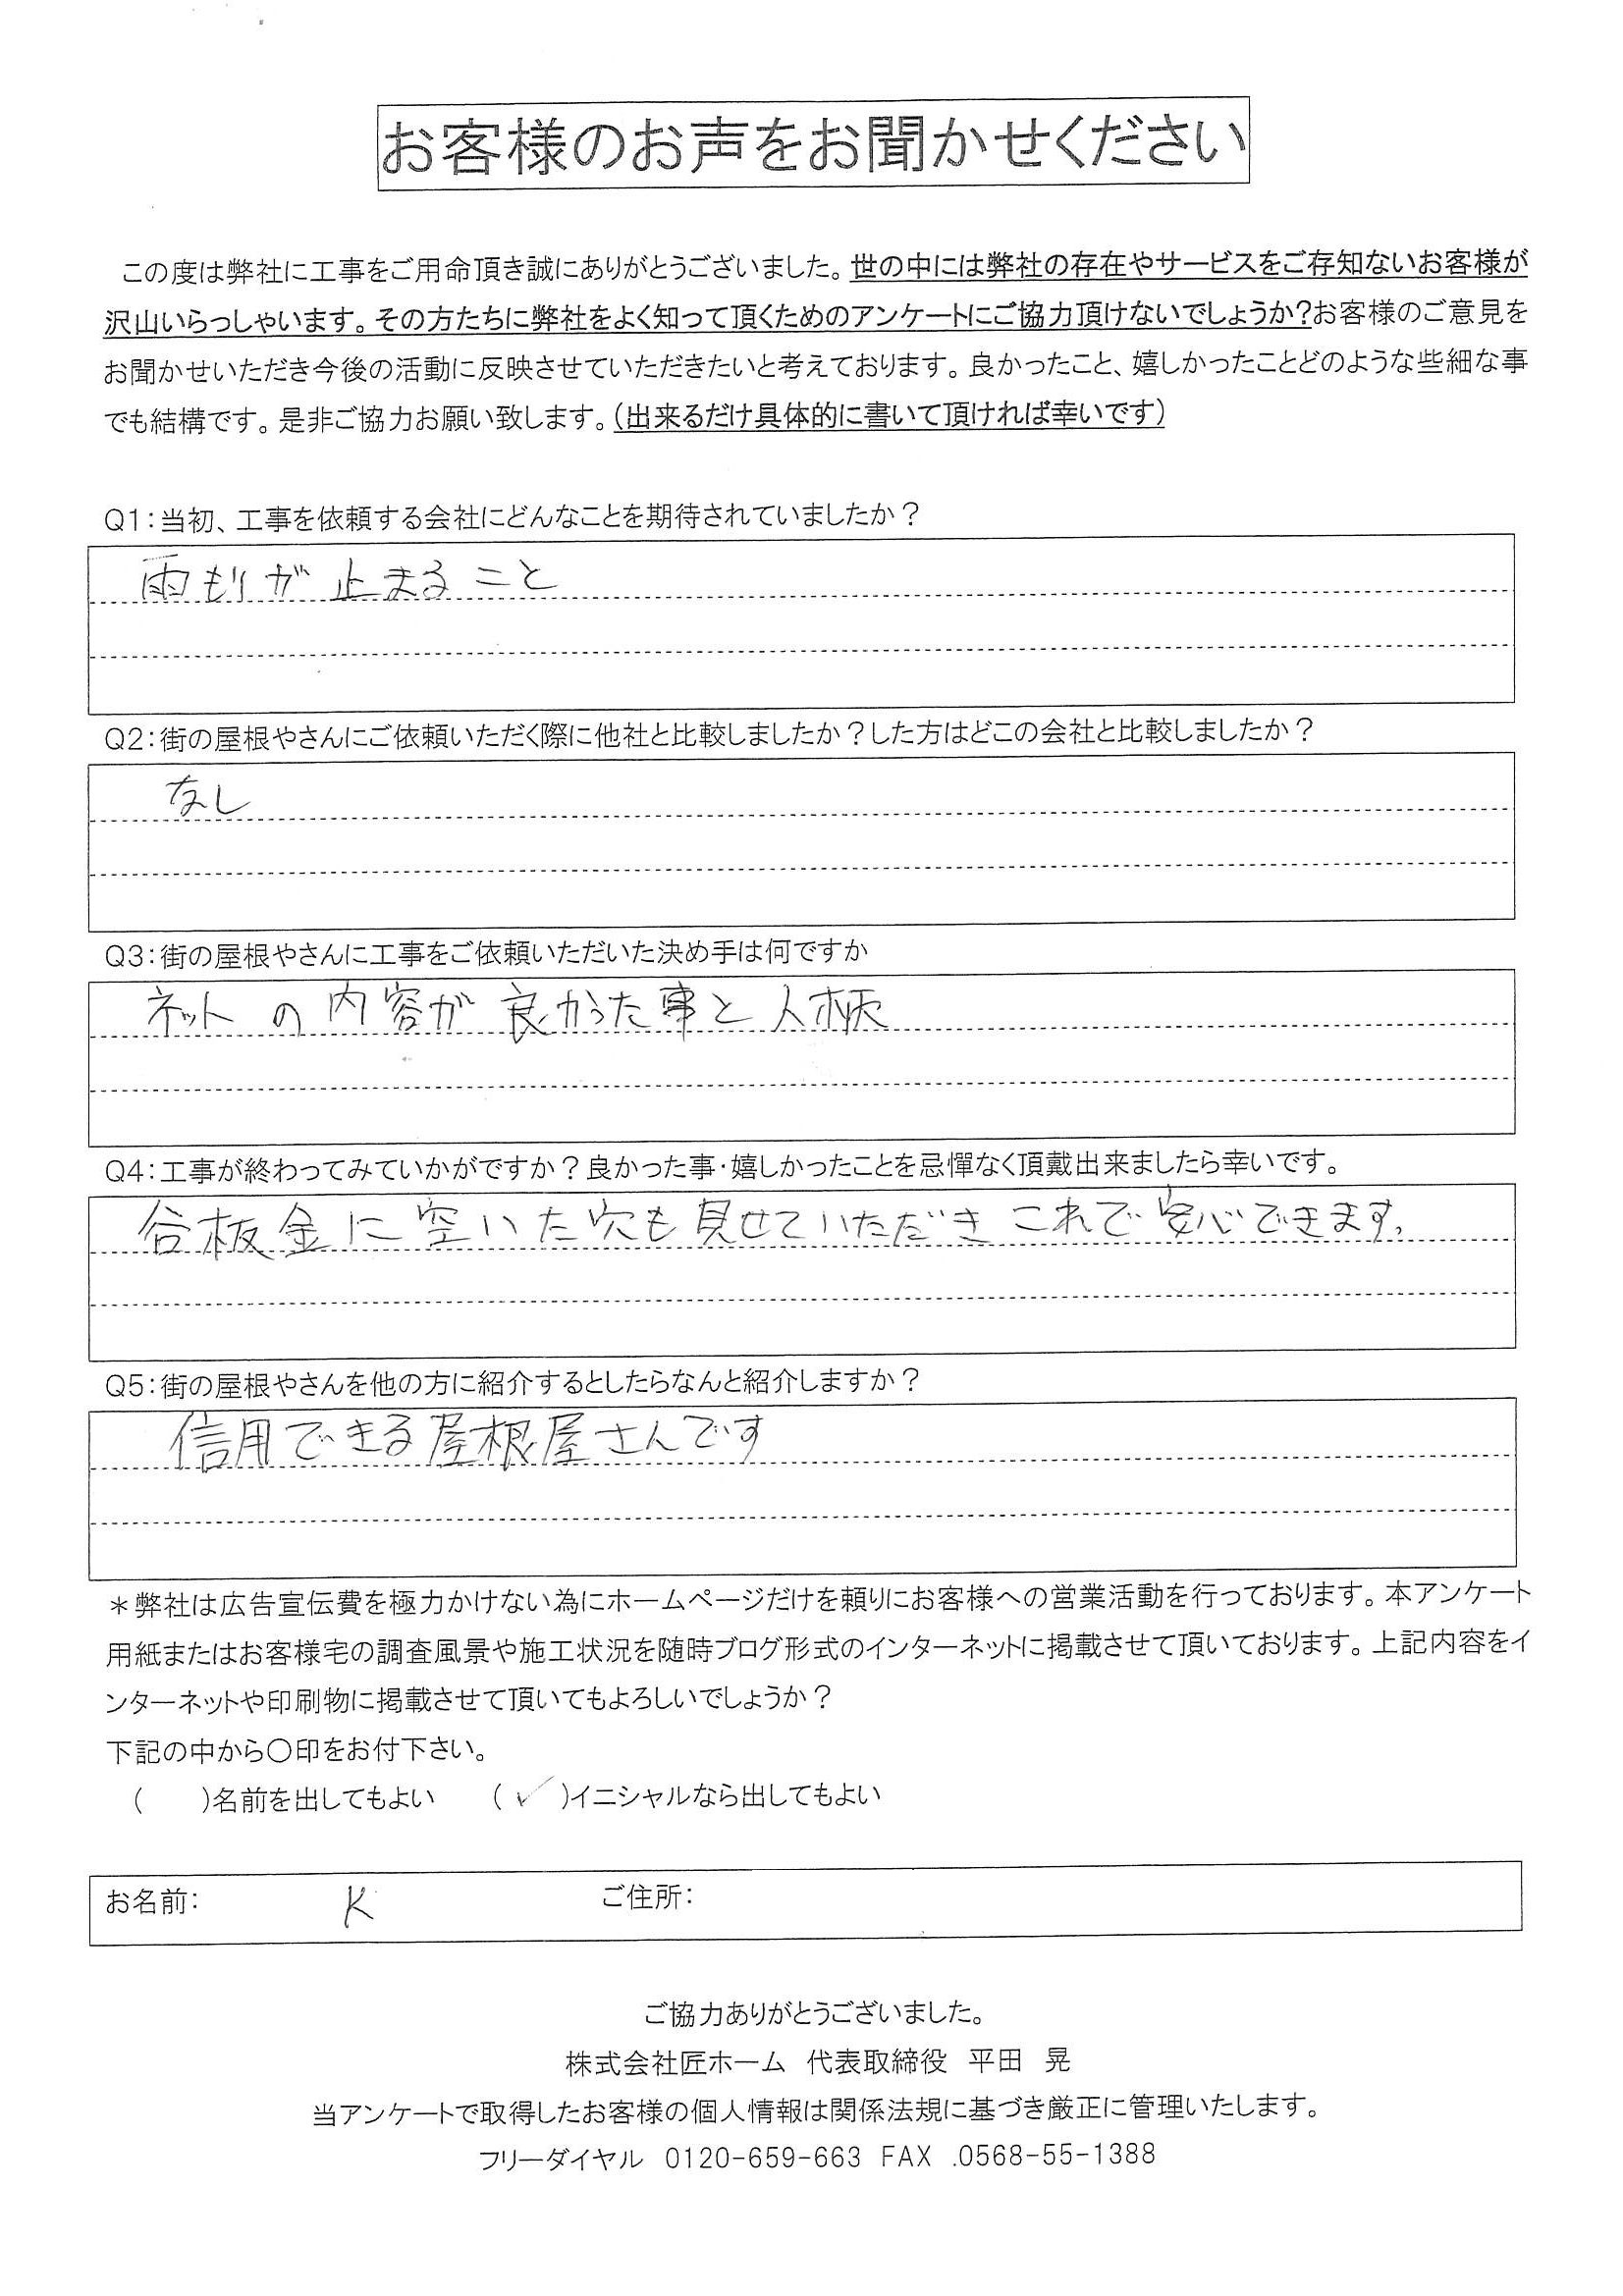 お客様のお声をお聞かせください
この度は弊社に工事をご用命頂き誠にありがとうございました。世の中には弊社の存在やサービスをご存知ないお客様が
沢山いらっしゃいます。その方たちに弊社をよく知って頂くためのアンケートにご協力頂けないでしょうか?お客様のご意見を
お聞かせいただき今後の活動に反映させていただきたいと考えております。良かったこと、嬉しかったことどのような些細な事
でも結構です。是非ご協力お願い致します。(出来るだけ具体的に書いて頂ければ幸いです)
Q1:当初、工事を依頼する会社にどんなことを期待されていましたか?
雨もりが止まること
Q2:街の屋根やさんにご依頼いただく際に他社と比較しましたか?した方はどこの会社と比較しましたか?
なし
Q3:街の屋根やさんに工事をご依頼いただいた決め手は何ですか
ネットの内容が良かった事と人柄
Q4:工事が終わってみていかがですか?良かった事・嬉しかったことを忌憚なく頂戴出来ましたら幸いです。
谷板金に空いた穴も見せていただきこれで安心できます。
Q5:街の屋根やさんを他の方に紹介するとしたらなんと紹介しますか?
信用できる屋根屋さんです
*弊社は広告宣伝費を極力かけない為にホームページだけを頼りにお客様への営業活動を行っております。本アンケート
用紙またはお客様宅の調査風景や施工状況を随時ブログ形式のインターネットに掲載させて頂いております。上記内容をイ
ンターネットや印刷物に掲載させて頂いてもよろしいでしょうか?
下記の中から〇印をお付下さい。
(　　)名前を出してもよい　　(✓)イニシャルなら出してもよい
お名前: K ご住所:
ご協力ありがとうございました。
株式会社匠ホーム 代表取締役 平田 晃
当アンケートで取得したお客様の個人情報は関係法規に基づき厳正に管理いたします。
フリーダイヤル 0120-659-663 FAX .0568-55-1388